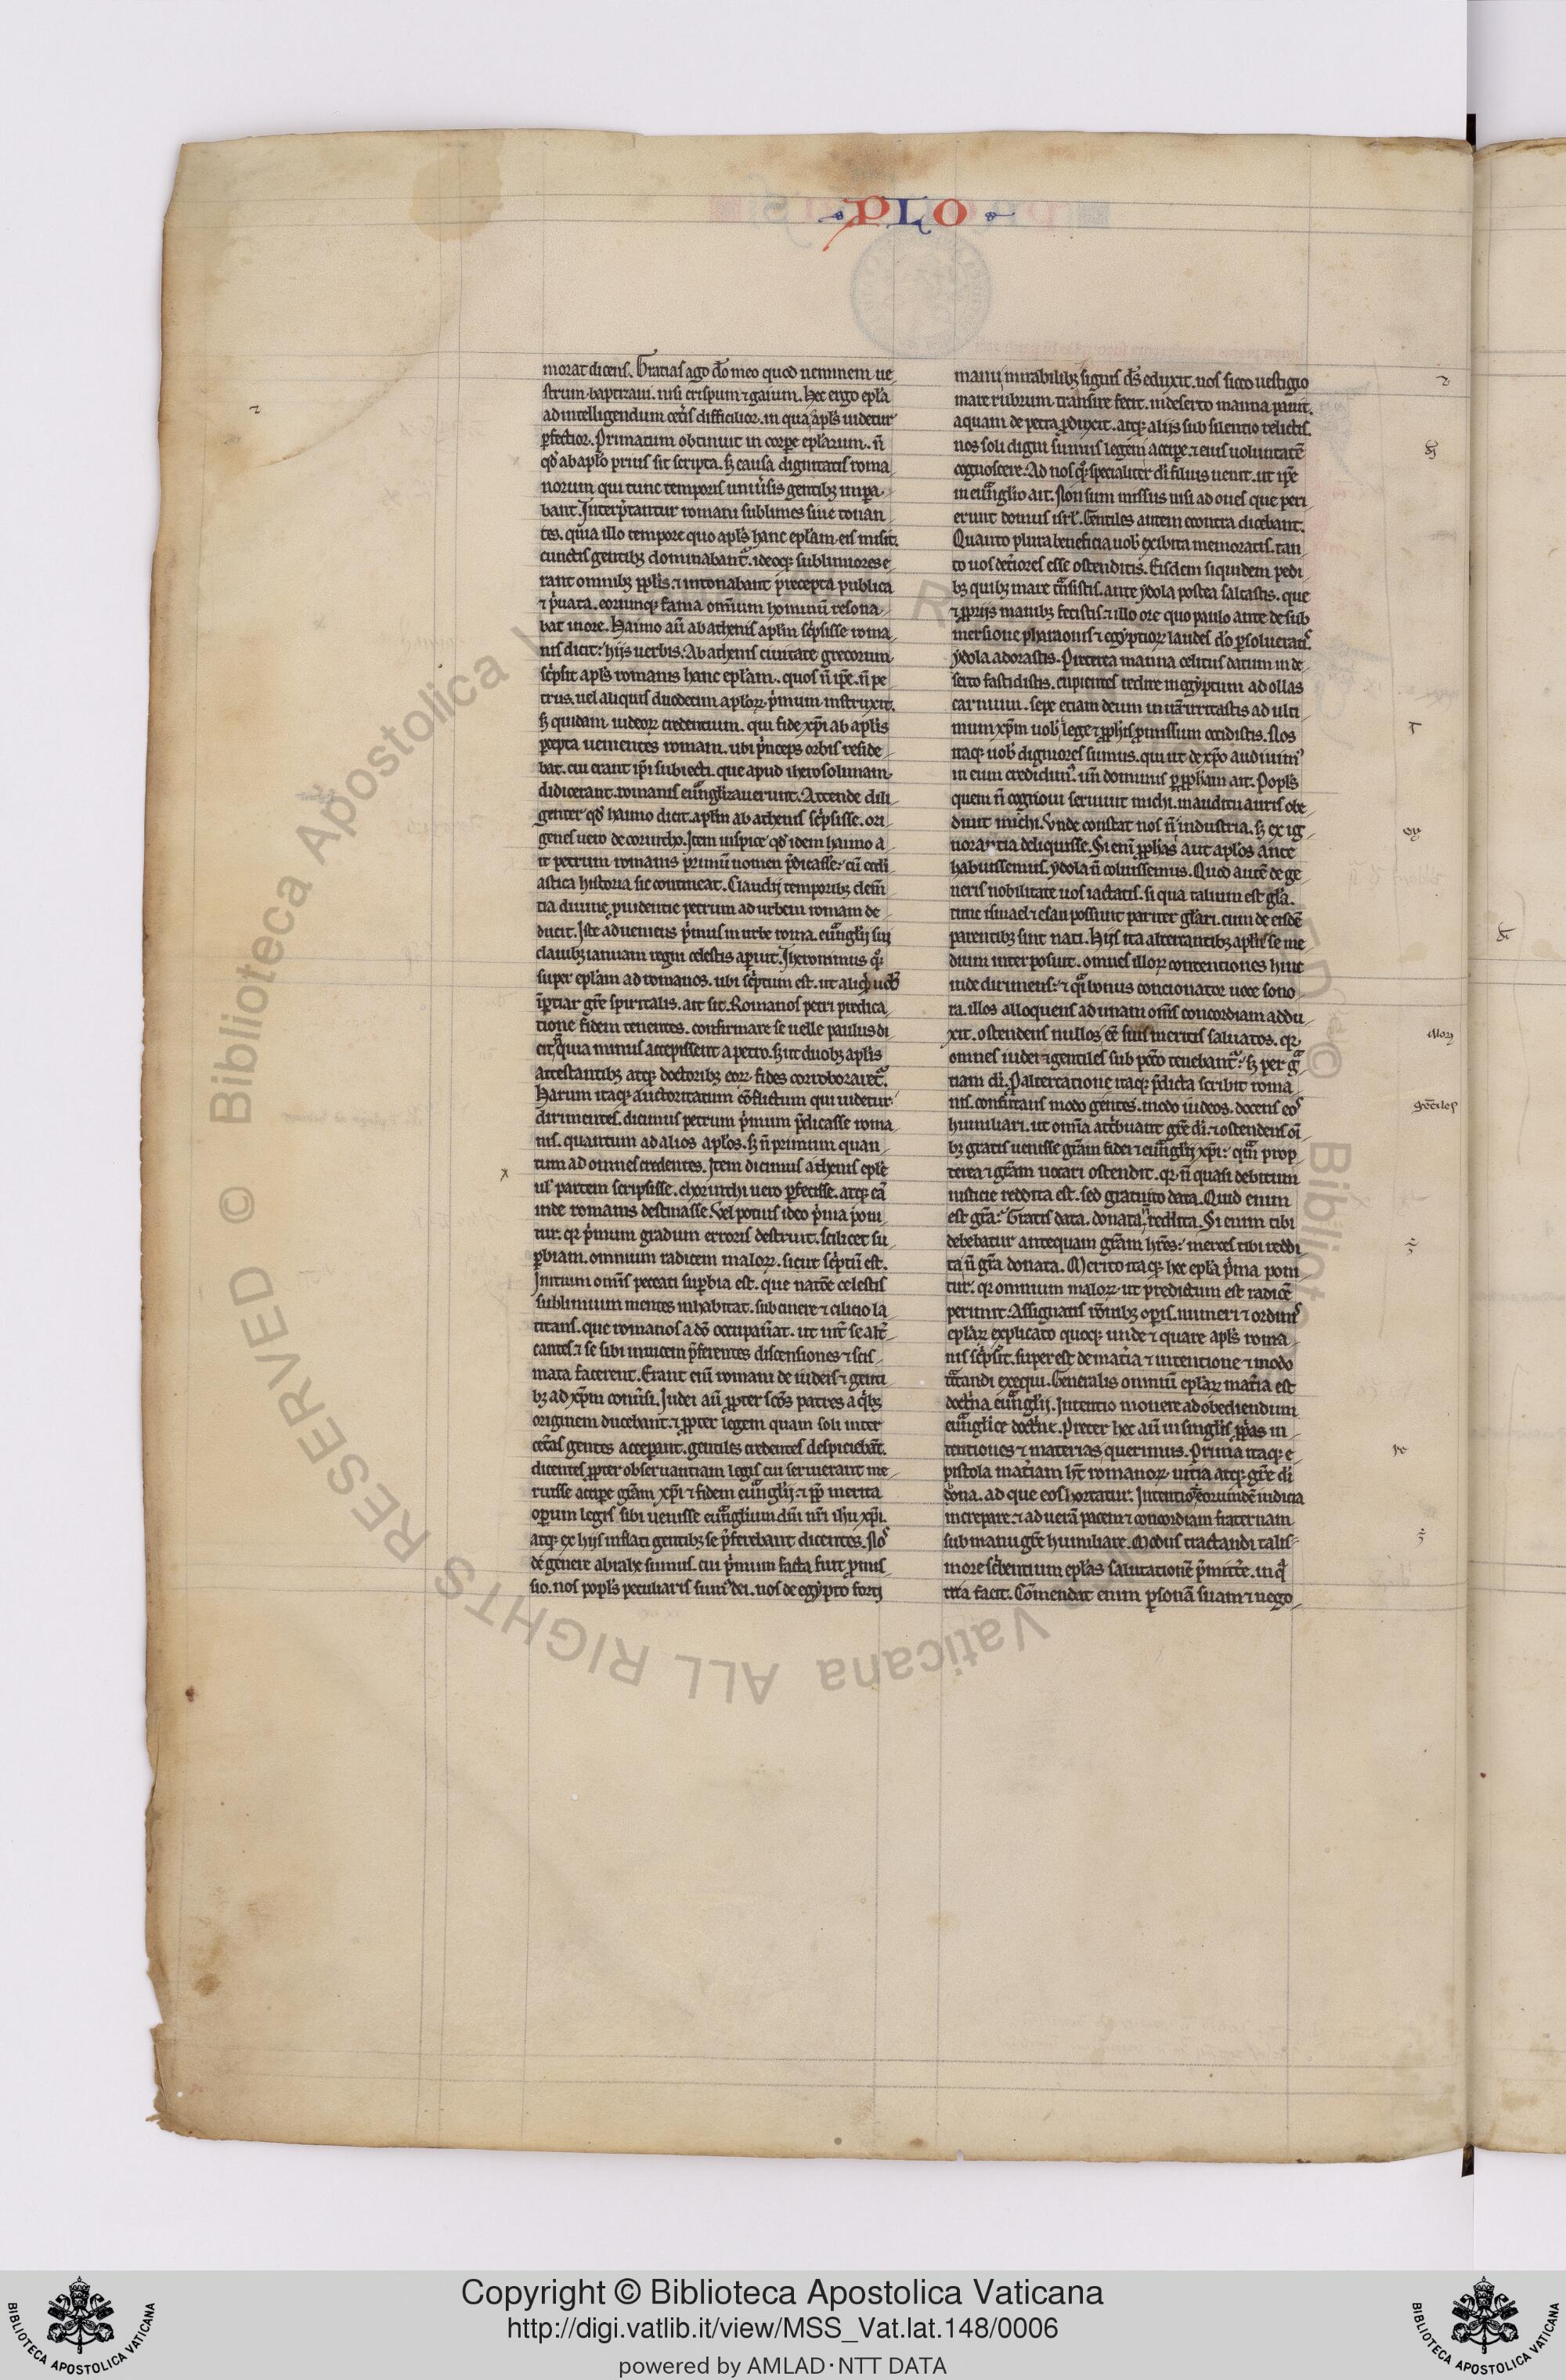 PLO
morat dicens. Gratias ago do meo quod neminem ue
strum baptizaui. nisi crispum ⁊ gaium. Hec ergo epl̃a
ad intelligendum cet̃is difficilior. in qua apl̃s uidetur
ꝑfectior. Primatum obtinuit in corꝑe epl̃arum. ñ
qd̓ ab apl̃o prius sit scripta. sꝫ causa dignitatis roma
norum qui tunc temporis uniũsis gentibꝫ impa
bant. Interp̃tantur romani sublimes siue tonan
tes. quia illo tempore quo apl̃s hanc epl̃am eis misit.
cunctis gentibꝫ dominabant᷑. ideoqꝫ sublimiores e
rant omnibꝫ ppl̃is. ⁊ intonabant precepta publica
⁊ p̃uata. eorumqꝫ fama omnium hominũ resona
bat in ore. Haimo aũ ab athenis apl̃m sc̃psisse roma
nis dicit: hijs uerbis. Ab athenis ciuitate grecorum
sc̃psit apl̃s romanis hanc epl̃am. quos ñ ip̃e. ñ pe
trus. uel aliquis duodecim apl̃oꝝ p̃mum instruxit.
sꝫ quidam iudeoꝝ credentium. qui fide xp̃i ab apl̃is
ꝑcepta uenientes romam. ubi p̃nceps orbis reside
bat. cui erant ip̃i subiecti. que apud iherosolimam
didicerant. romanis euũglizauerunt. Attende dili
genter qd̓ haimo dicit. apl̃m ab athenis sc̃psisse. ori
genes uero de corintho. Item inspice qd̓ idem haimo a
it petrum romanis primũ nomen p̃dicasse: cũ eccl̃i
astica historia sic contineat. Claudij temporibꝫ clem̃
tia diuine ꝓuidentie petrum ad urbem romam de
ducit. Iste adueniens p̃mus in urbe roma. euũglij sui
clauibꝫ ianuam regni celestis aꝑuit. Iheronimus qꝫ
super epl̃am ad romanos. ubi sc̃ptum est. ut aliqd̓ uob̃
iꝑtiar gr̃e spiritalis. ait sic. Romanos petri predica
tione fidem tenentes. confirmare se uelle paulus di
cit. quia minus accepissent a petro. sꝫ ut duobꝫ apl̃is
attestantibꝫ atqꝫ doctoribꝫ eoꝝ fides corroboraret᷑.
Harum itaqꝫ auctoritatum cõflictum qui uidetur
dirimentes. dicimus petrum p̃mum p̃dicasse roma
nis. quantum ad alios apl̃os. sꝫ ñ primum quan
tum ad omnes credentes. Item dicimus athenis epl̃e
ul̃ partem scripsisse. chorinthi uero ꝑfecisse. atqꝫ eã
inde romanis destinasse. Vel potius ideo p̃ma poni
tur. qꝛ p̃mum gradum erroris destruit. scilicet su
ꝑbiam. omnium radicem maloꝝ. sicut sc̃ptũ est.
Initium om̃is peccati suꝑbia est. que natõe celestis
sublimium mentes inhabitat. sub cinere ⁊ cilicio la
titans. que romanos adõ occupauerat. ut int̃ se alt̃
cantes ⁊ se sibi inuicem p̃ferentes discensiones ⁊ scis
mata facerent. Erant eni romani de iudeis ⁊ genti
bꝫ ad xp̃m conũsi. Iudei aũ ꝓpter scõs patres a qibꝫ
originem ducebant. ⁊ ꝓpter legem quam soli inter
cet̃as gentes acceꝑant. gentiles credentes despiciebãt.
dicentes ꝓpter obseruantiam legis cui seruierant me
ruisse acciꝑe gr̃am xp̃i ⁊ fidem euũglij. ⁊ ꝓp̃ merita
oꝑum legis sibi uenisse euũglium dñi nr̃i ihũ xp̃i.
atqꝫ ex hijs inflati gentibꝫ se p̃ferebant dicentes. Nos
de genere abrahe sumus. cui p̃mum facta fuit ꝓmis
sio. nos popl̃s peculiaris sum᷒ dei. nos de egypto forti
manu mirabilibꝫ signis dñs eduxit. nos sicco uestigio
mare rubrum transire fecit. in deserto manna pauit.
aquam de petra ꝓduxit. atqꝫ alijs sub silentio relictis.
nos soli digni sumus legem acciꝑe. ⁊ eius uoluntatẽ
cognoscere. Ad nos qꝫ specialiter di filius uenit. ut ip̃e
in euũglio ait. Non sum missus nisi ad oues que peri
erunt domus isrl̃. Gentiles autem econtra dicebant.
Quanto plura beneficia uob̃ exibita memoratis. tan
to uos det̃iores esse ostenditis. Eisdem siquidem pedi
bꝫ quibꝫ mare trãsistis. ante ydola postea saltastis. que
⁊ ꝓprijs manibꝫ fecistis. ⁊ illo ore quo paulo ante de sub
mersione pharaonis ⁊ egyptioꝝ laudes dõ ꝑsoluerat᷒.
ydola adorastis. Preterea manna celitus datum in de
serto fastidistis. cupientes redire in egyptum ad ollas
carnium. sepe etiam deum in irã irritastis ad ulti
mum xp̃m uob̃ lege ⁊ ꝓph̃is ꝓmissum occidistis. Nos
itaqꝫ uob̃ digniores sumus. qui ut de xp̃o audiuim᷒
in eum credidim᷒. uñ dominus ꝑ ꝓph̃am ait. Popl̃s
quem ñ cognoui seruiuit michi. in auditu auris obe
diuit michi. Vnde constat nos ñ industria. sꝫ ex ig
norantia deliquisse. Si eni ꝓph̃as aut apl̃os ante
habuissemus. ydola ñ coluissemus. Quod autẽ de ge
neris nobilitate uos iactatis. si qua talium est gl̃a.
tunc ismael ⁊ esau possunt pariter gl̃ari. cum de eisdẽ
parentibꝫ sint nati. Hijs ita altercantibꝫ apl̃us se me
dium interposuit. omnes illoꝝ contentiones hinc
inde dirimens: ⁊ qũ bonus concionator uoce sono
ra. illos alloquens ad unam om̃s concordiam addu
xit. ostendens nullos eẽ suis meritis saluatos. qꝛ
omnes iudei ⁊ gentiles sub pccõ tenebant᷑. sꝫ per gr̃
tiam di. P altercatione itaqꝫ p̃dicta scribit roma
nis. confutans modo gentes. modo iudeos. docens eos
humiliari. ut omnia atꞇ̃buant gr̃e di. ⁊ ostendens oĩ
bꝫ gratis uenisse gr̃am fidei ⁊ euũglij xp̃i: qm̃ prop
terea ⁊ gr̃am uocari ostendit. qꝛ ñ quasi debitum
iusticie reddita est. sed gratuito data. Quid enim
est gr̃a? Gratis data. donata ñ reddita. Si enim tibi
debebatur antequam gr̃am hr̃es: merces tibi reddi
ta ñ gr̃a donata. Merito itaqꝫ hec epl̃a p̃ma poni
tur. qꝛ omnium maloꝝ ut predictum est radicẽ
perimit. Assignatis rõnibꝫ oꝑis. numeri ⁊ ordinis
epl̃aꝝ explicato quoqꝫ unde ⁊ quare apl̃s roma
nis sc̃psit. superest de mat̃ia ⁊ intentione ⁊ modo
tractandi exequi. Generalis omniũ epl̃aꝝ mat̃ia est
doct̃na euũglij. Intentio mouere ad obediendum
euũglice doct̃ne. Preter hec aũ in singl̃is ꝓp̃as in
tentiones ⁊ materias querimus. Prima itaqꝫ e
pistola mat̃iam ht̃ romanoꝝ uitia atqꝫ gr̃e di
dona. ad que eos hortatur. Intentio eorundẽ iudicia
increpare. ⁊ ad uerã pacem ⁊ concordiam fraternam
sub manu gr̃e humiliare. Modus tractandi talis
more sc̃bentium epl̃as salutationẽ p̃mittit. in q̃
tria facit. Cõmendat enim ꝑsonã suam ⁊ nego
gẽtiles
Copyright © Biblioteca Apostolica Vaticana
http://digi.vatlib.it/view/MSS_Vat.lat.148/0006
powered by AMLAD·NTT DATA
BIBLIOTECA APOSTOLICA VATICANA
BIBLIOTECA APOSTOLICA VATICANA